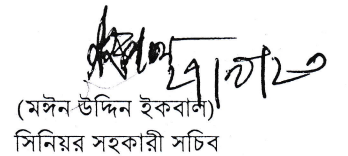 (মঈন উদ্দিন ইকবাল)
সিনিয়র সহকারী সচিব